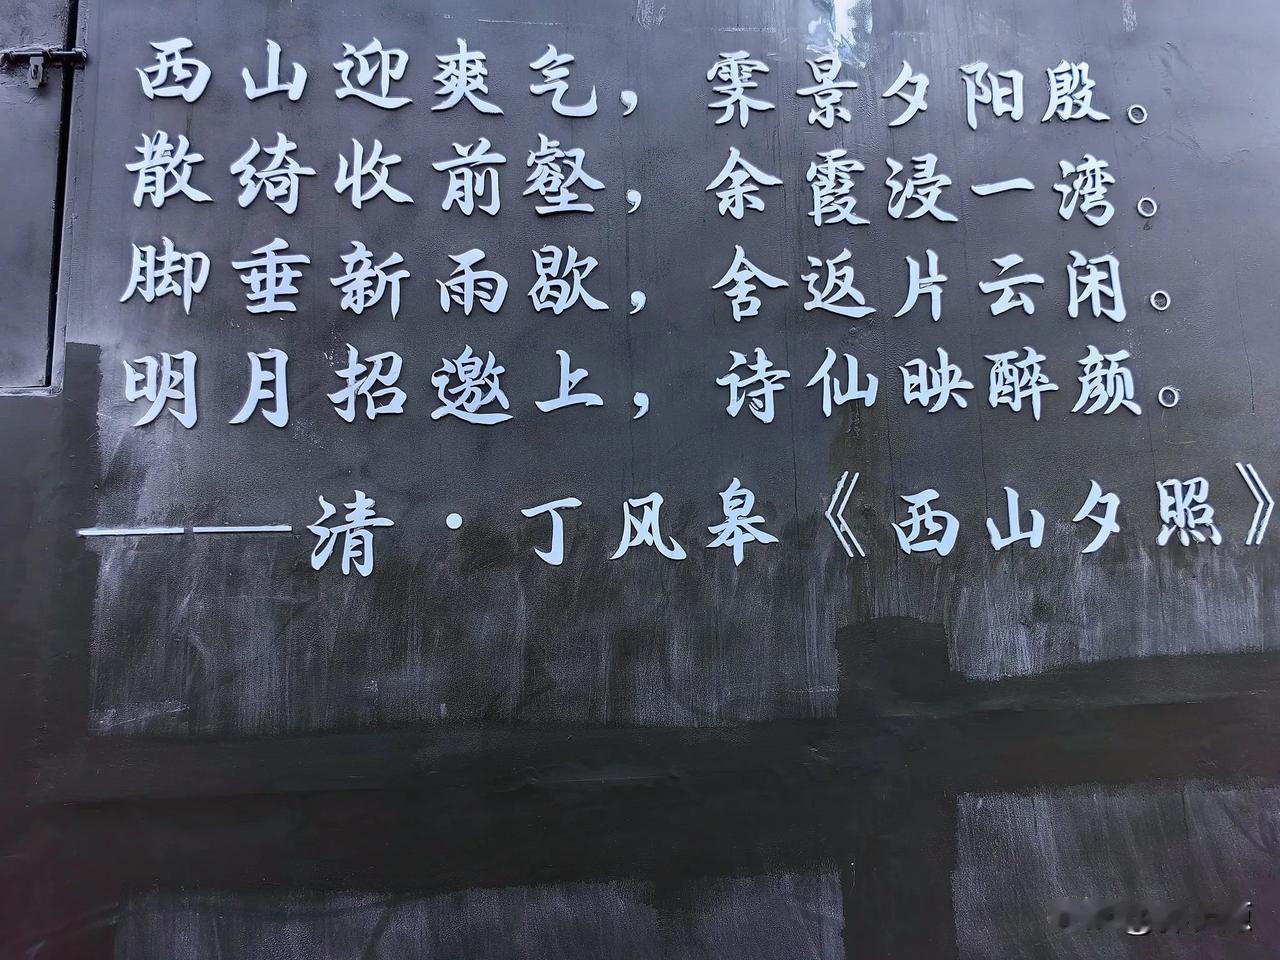 西山迎爽气，霁景夕阳殷。
散绮收前壑，余霞浸一湾。
脚垂新雨歇，舍返片云闲。
明月招邀上，诗仙映醉颜。
——清·丁风皋《西山夕照》